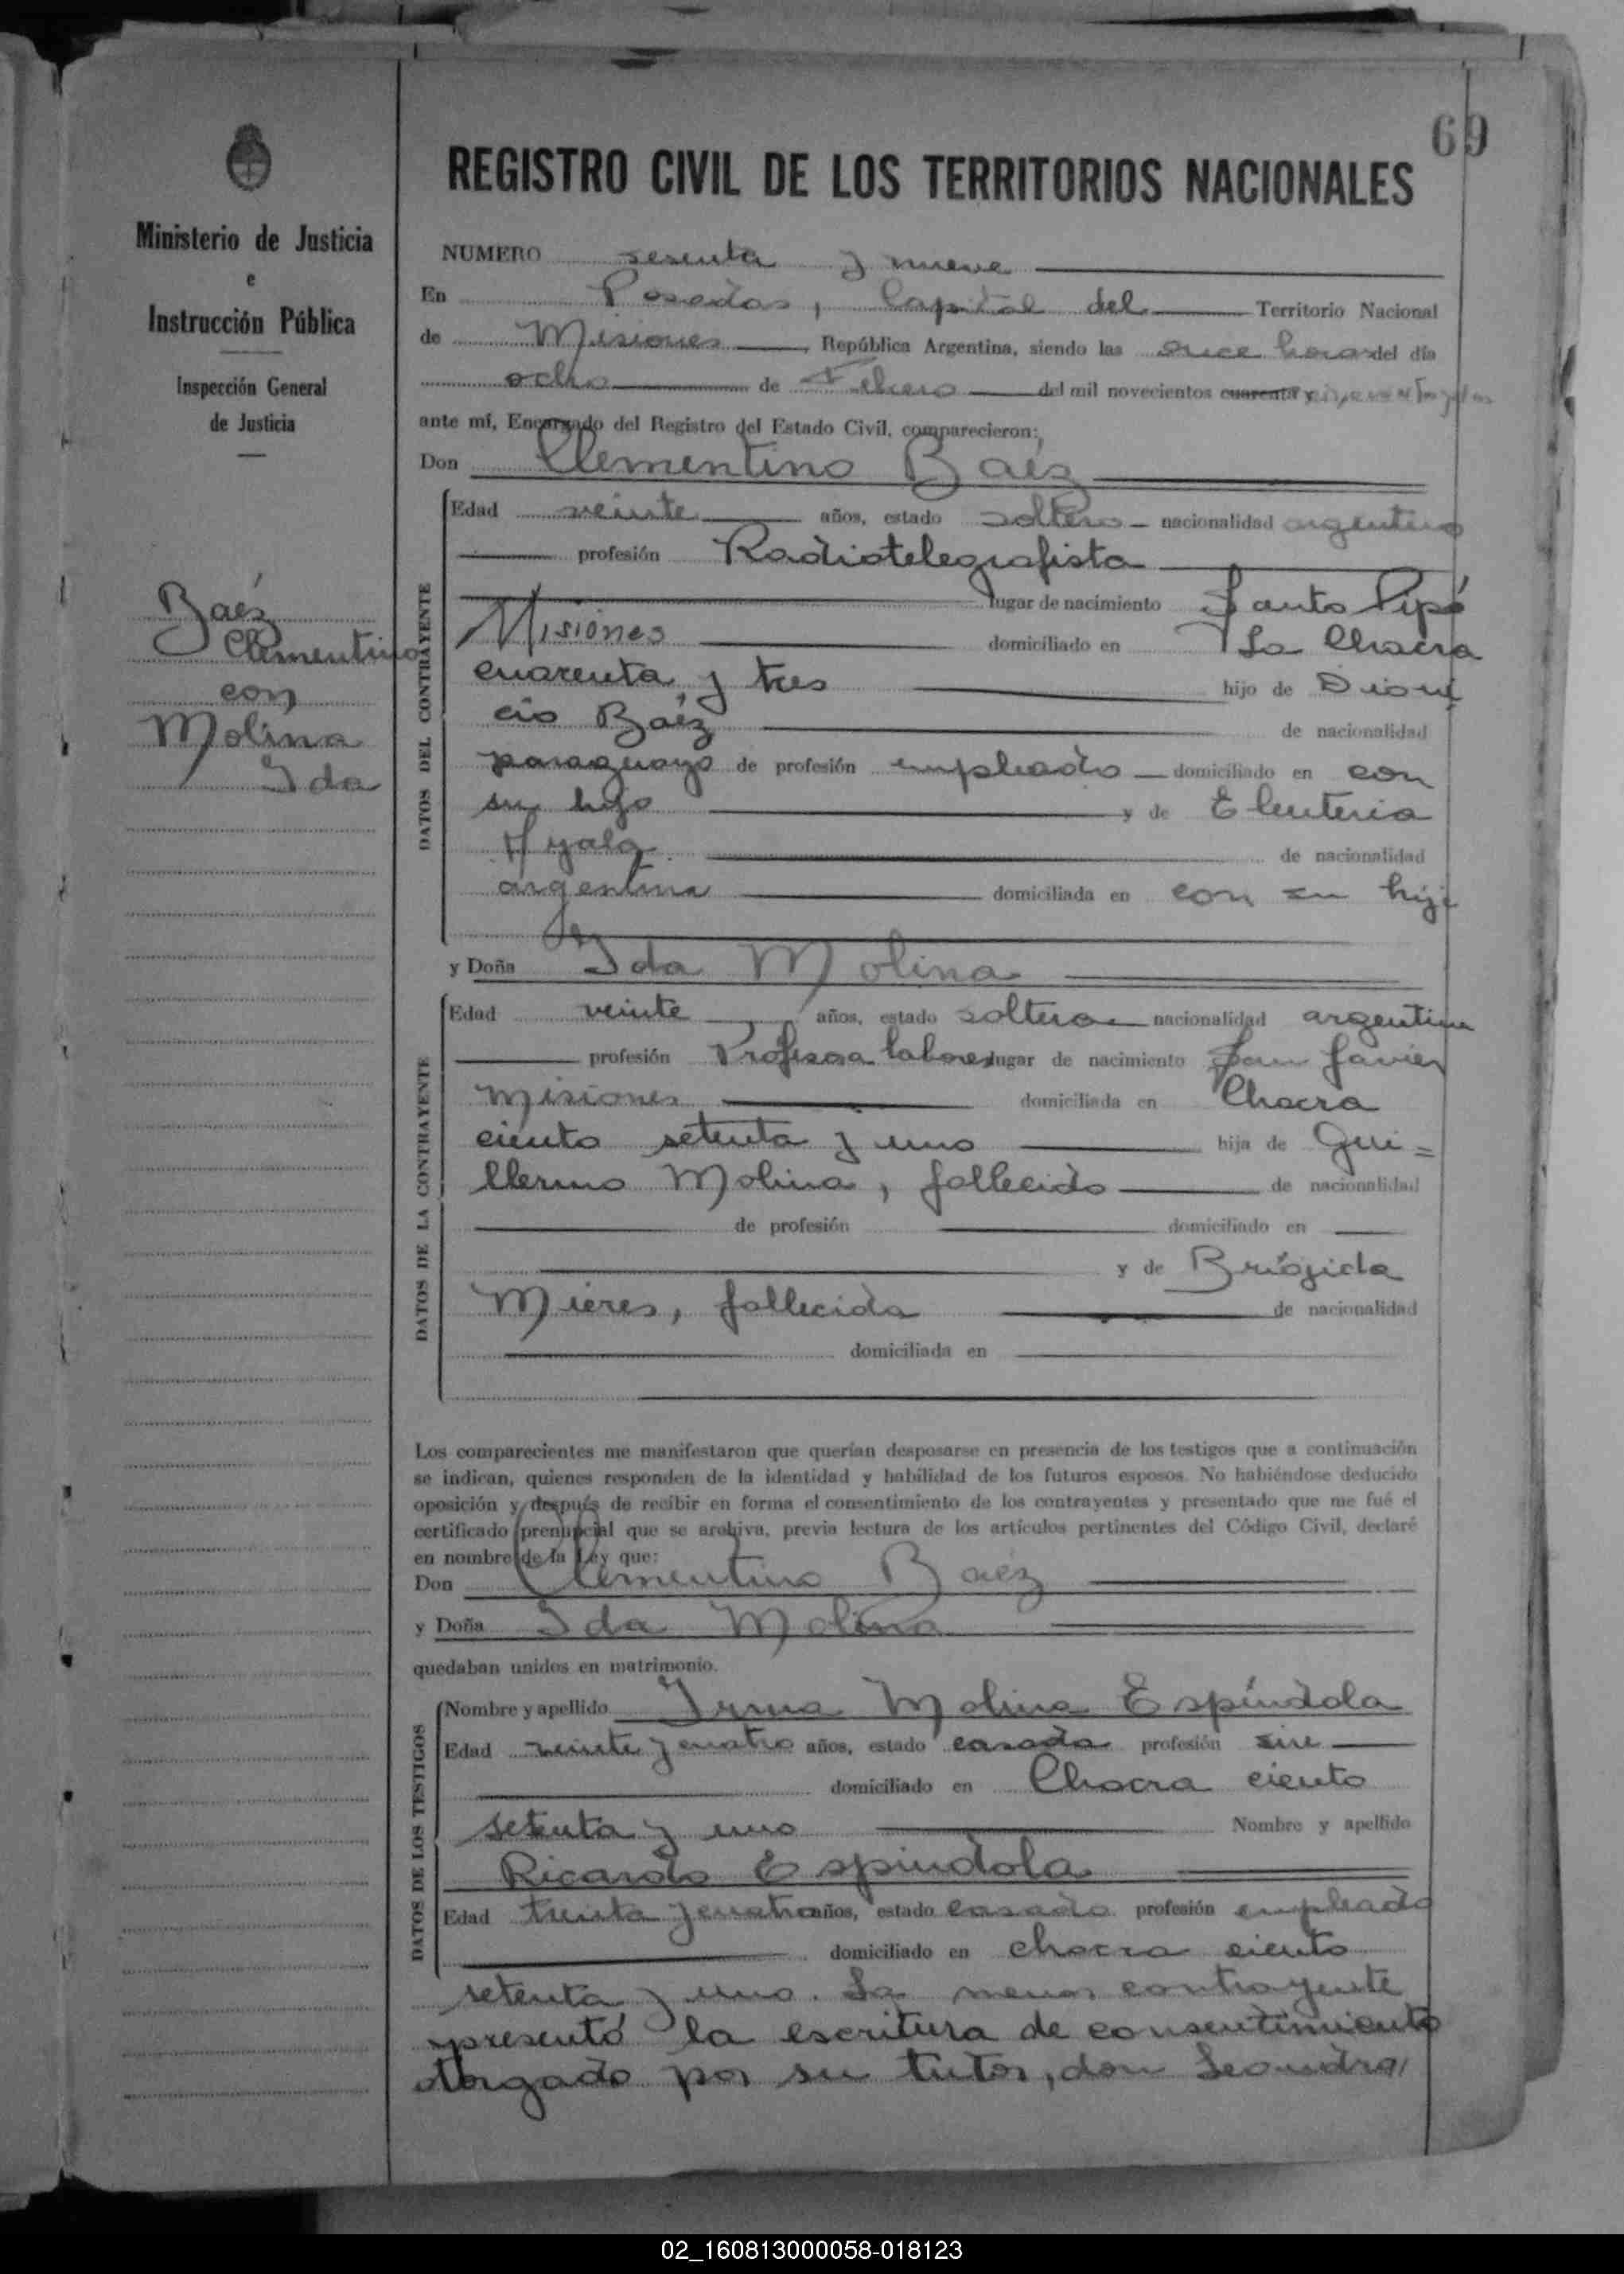 69
REGISTRO CIVIL DE LOS TERRITORIOS NACIONALES
Ministerio de Justicia
e
Instrucción Pública
Inspección General
de Justicia
Baéz
Clementino
con
Molina
Ida
NUMERO sesenta y nueve
En Posadas, Capital del Territorio Nacional
de Misiones, República Argentina, siendo las once horas del día
ocho de Febrero del mil novecientos cuarenta y
ante mí, Encargado del Registro del Estado Civil, comparecieron:
Don Clementino Baéz
DATOS DEL CONTRAYENTE
Edad veinte años, estado soltero nacionalidad argentino
profesión Radiotelegrafista
lugar de nacimiento Santo Pipó
Misiones domiciliado en La Chacra
cuarenta y tres hijo de Dioni
cio Baéz de nacionalidad
paraguayo de profesión empleado domiciliado en con
su hijo y de Eleuteria
Ayala de nacionalidad
argentina domiciliada en con su hijo
y Doña Ida Molina
DATOS DE LA CONTRAYENTE
Edad veinte años, estado soltera nacionalidad argentina
profesión Profesora labores lugar de nacimiento San Javier
Misiones domiciliada en Chacra
ciento setenta y uno hija de Gui=
llermo Molina, fallecido de nacionalidad
de profesión domiciliado en
y de Briógida
Mieres, fallecida de nacionalidad
domiciliada en
Los comparecientes me manifestaron que querían desposarse en presencia de los testigos que a continuación
se indican, quienes responden de la identidad y habilidad de los futuros esposos. No habiéndose deducido
oposición y después de recibir en forma el consentimiento de los contrayentes y presentado que me fué el
certificado prenupcial que se archiva, previa lectura de los artículos pertinentes del Código Civil, declaré
en nombre de la Ley que:
Don Clementino Baéz
y Doña Ida Molina
quedaban unidos en matrimonio.
DATOS DE LOS TESTIGOS
Nombre y apellido Irma Molina Espíndola
Edad veinte y cuatro años, estado casada profesión sin
domiciliado en Chacra ciento
setenta y uno Nombre y apellido
Ricardo Espindola
Edad treinta y cuatro años, estado casado profesión empleado
domiciliado en chacra ciento
setenta y uno. La menor contrayente
presentó la escritura de consentimiento
otorgado por su tutor, don Leandro
02_160813000058-018123